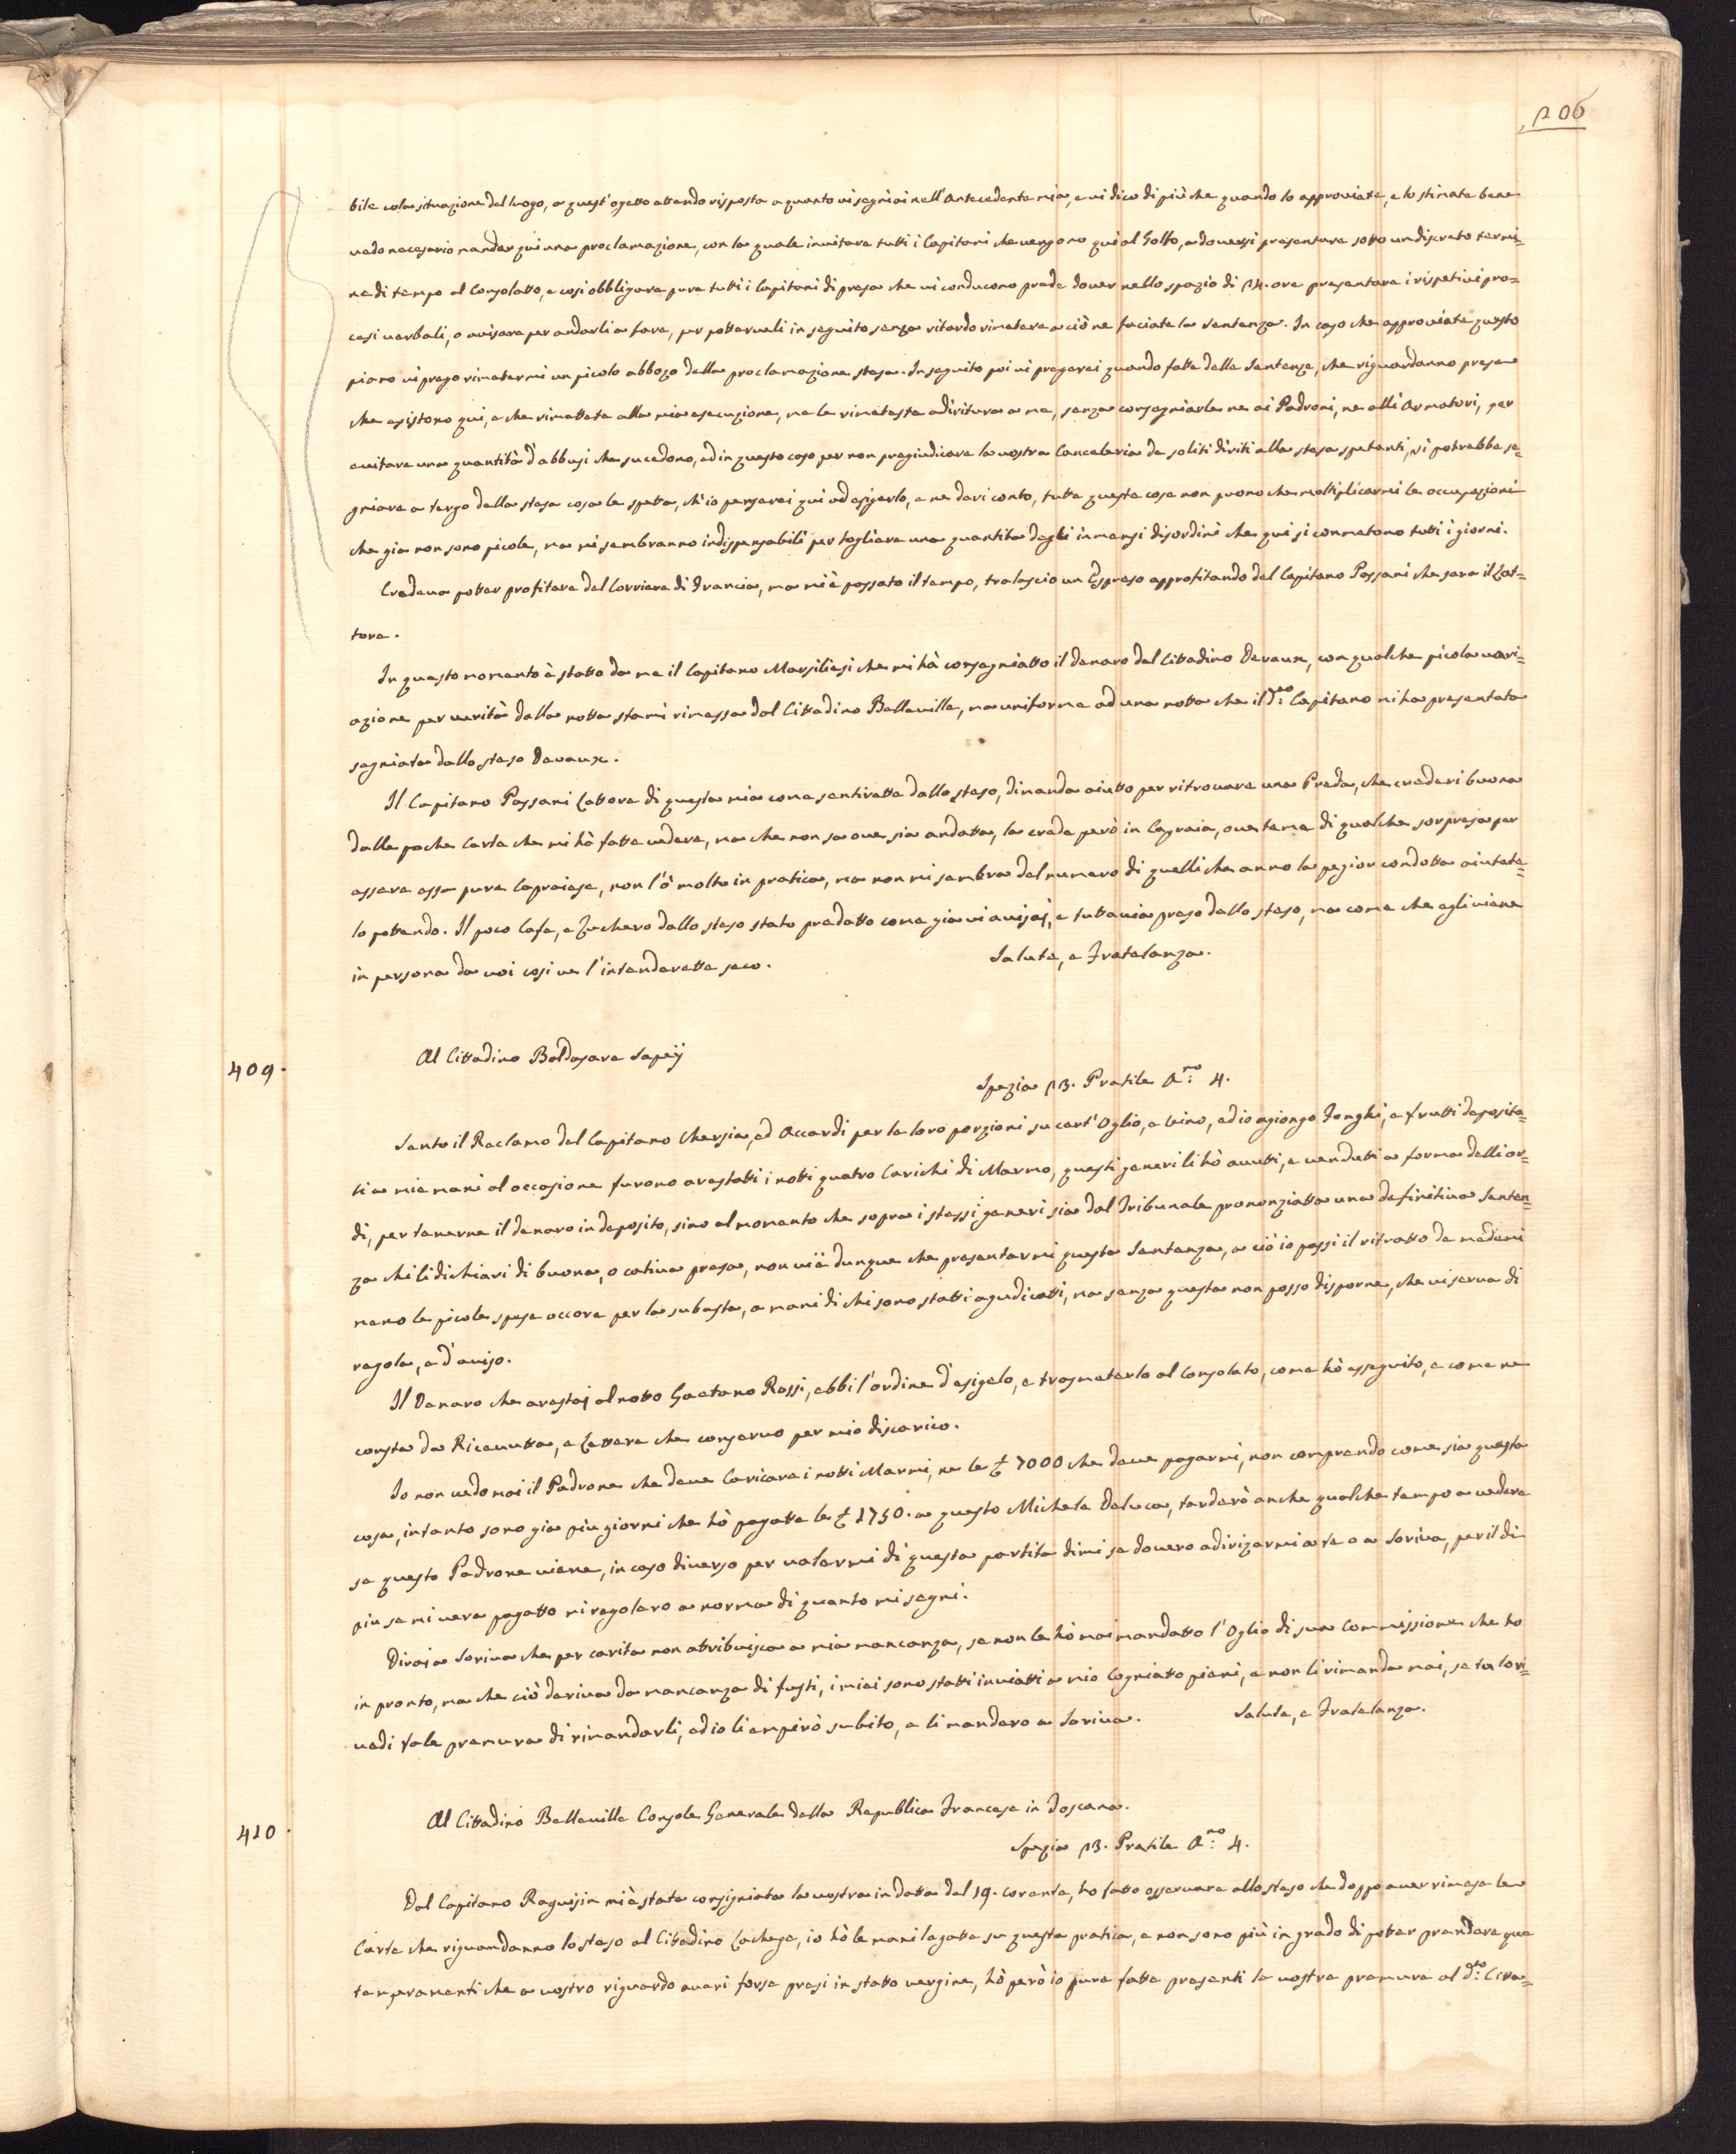 206
bile cola situazione del luogo, a quest'ogetto attendo risposta a quanto vi segniai nell'antecedente mia, e vi dico di più che quando lo approviate, e lo stimate bene
vedo necesario mandar qui una proclamazione, con la quale invitare tutti i Capitani che vengono qui al Golfo, a doversi presentare sotto un discreto termi=
ne di tempo al Consolatto, e così obbligare pure tutti i Capitani di presa che vi conducono prede dover nello spazio di 24. ore presentare i rispetivi pro=
cesi verbali, o avisare per andarli a fare, per potterveli in seguito senza ritardo rimetere a ciò ne faciate la sentenza. In caso che approviate questo
piano vi prego rimetermi un picolo abbozo della proclamazione stesa. In seguito poi vi pregerei quando fatte delle sentenze, che riguardanno presa
che esistono qui, e che rimettete alla mia esecuzione, me le rimeteste adiritura a me, senza consegniarle ne ai Padroni, ne alli Armatori, per
evitare una quantità d'abbusi che sucedono, ed in questo caso per non pregiudicare la vostra Cancelaria de soliti diriti alla stesa spetanti, si potrebbe se=
gniare a tergo della stesa cosa le spetta, ch'io penserei qui ad esigerlo, e ne darei conto, tutte queste cose non puono che moltiplicarmi le occupazioni
che gia non sono picole, ma mi sembranno indispensabili per togliere una quantita degli immensi disordini che qui si commetono tutti i giorni.
Credeva potter profitare del Corriere di Francia, ma mi è passato il tempo, tralascio un Espreso approfitando del Capitano Passani che sara il Lat=
tore.
In questo momento è statto da me il Capitano Marsiliesi che mi hà consegniatto il denaro del Cittadino Devaux, con qualche picola vari=
azione per verità dalla notta stami rimessa dal Cittadino Belleville, ma uniforme ad una notta che il d.to Capitano mi ha presentata
segniata dallo steso Devaux.
Il Capitano Passani Lattore di questa mia come sentirette dallo steso, dimanda aiutto per ritrovare una Preda, che crederi buona
dalle poche Carte che mi hà fatte vedere, ma che non sa ove sia andatta, la crede però in Capraia, ove teme di qualche sorpresa per
essere essa pure Capraiese, non l'ò molto in pratica, ma non mi sembra del numero di quelli che anno la pegior condotta aiutate=
lo pottendo. Il poco Cafe, e Zuchero dallo steso stato predatto come gia vi avisai, e tuttavia preso dallo steso, ma come che egli viene
in persona da voi cosi ve l'intenderette seco.
Salute, e Fratelanza.
409.
Al Cittadino Baldasare Sapej
Spezia 23. Pratile A.no 4.
Sento il Reclamo del Capitano Chersia, ed Accardi per le loro porzioni su cert'Oglio, e vino, ed io agiongo Fonghi, e frutti deposita=
ti a mie mani al occasione furono arestatti i notti quatro Carichi di Marmo, questi generi li hò avutti, e vendutti a forma delli or=
di, per tenerne il denaro in deposito, sino al momento che sopra i stessi generi sia dal Tribunale prononziatta una definitiva senten=
za che li dichiari di buona, o cativa presa, non vi è dunque che presentarmi questa sentenza, a ciò io passi il ritratto de medemi
meno le picole spese occore per la subasta, a mani di chi sono statti agudicatti, ma senza questa non posso disporne, che vi serva di
regola, e d'aviso.
Il Denaro che arestai al notto Gaetano Rossi, ebbi l'ordine d'esigelo, e trasmeterlo al Consolato, come hò esseguito, e come ne
consta da Ricevutta, e Lettere che conservo per mio discarico.
Io non vedo mai il Padrone che deve Caricare i notti Marmi, ne le £ 7000 che deve pagarmi, non comprendo come sia questa
cosa, intanto sono gia piu giorni che hò pagatte le £ 1750. a questo Michele Deluca, tarderò anche qualche tempo a vedere
se questo Padrone viene, in caso diverso per valermi di questa partita dimi se dovero adirizarmi a te o a Soriva, per il di
piu se mi vera pagatto mi regolero a norma di quanto mi segni.
Dirai a Soriva che per carita non atribuisca a mia mancanza, se non le hò mai mandatto l'Oglio di sua Commissione che ho
in pronto, ma che ciò deriva da mancanza di fusti, i miei sono statti inviatti a mio Cogniatto piani, e non li rimanda mai, se tu lo ri=
vedi fale premura di rimandarli, ed io li empirò subito, e li mandero a Soriva.
Salute, e Fratelanza.
410.
Al Cittadino Belleville Console Generale della Republica Francese in Toscana.
Spezia 23. Pratile A.no 4.
Dal Capitano Ragusin mi è stata consigniata la vostra in datta del 19. corente, ho fatto osservare allo steso che doppo aver rimesa le
Carte che riguardanno lo steso al Cittadino Lachege, io hò le mani legatte su questa pratica, e non sono più in grado di potter prendere que
temperamenti che a vostro riguardo averi forse presi in statto vergine, hò però io pure fatte presenti le vostre premure al d.to Citta=